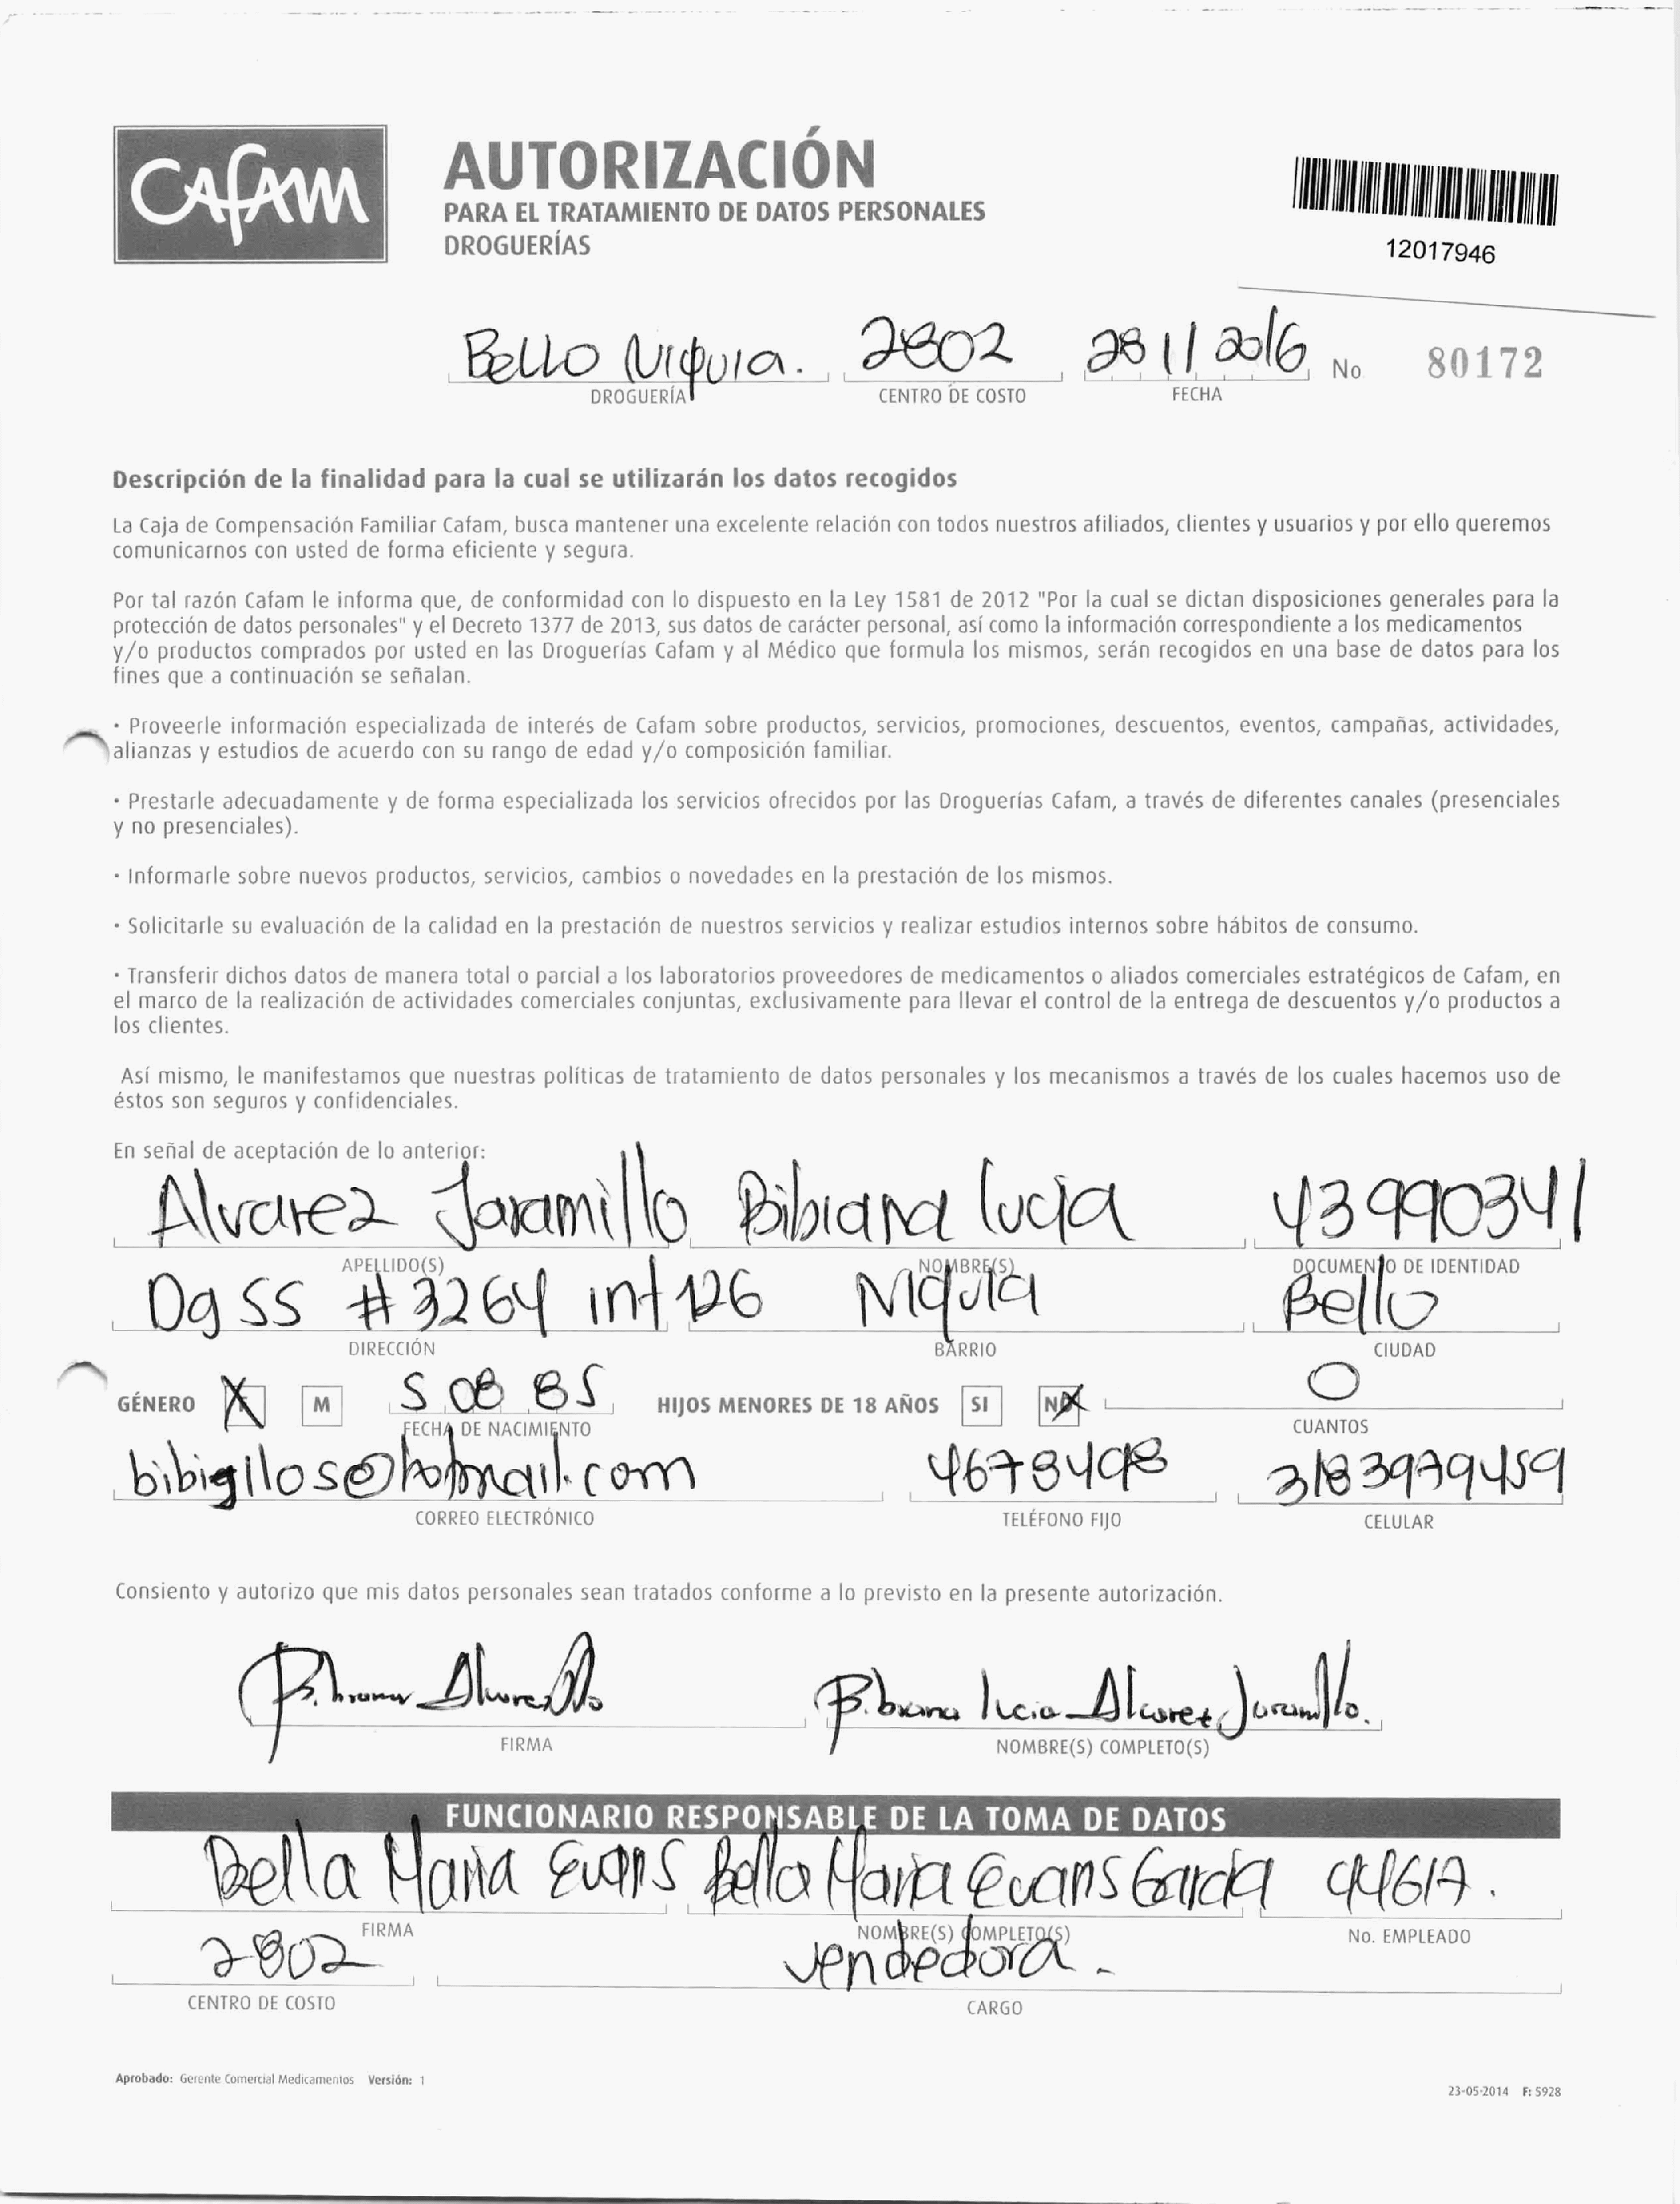 CAFAM
AUTORIZACIÓN
PARA EL TRATAMIENTO DE DATOS PERSONALES
DROGUERÍAS
12017946
Bello Niquia. 2802 28 11 2016 No 80172
DROGUERÍA CENTRO DE COSTO FECHA
Descripción de la finalidad para la cual se utilizarán los datos recogidos
La Caja de Compensación Familiar Cafam, busca mantener una excelente relación con todos nuestros afiliados, clientes y usuarios y por ello queremos
comunicarnos con usted de forma eficiente y segura.
Por tal razón Cafam le informa que, de conformidad con lo dispuesto en la Ley 1581 de 2012 "Por la cual se dictan disposiciones generales para la
protección de datos personales" y el Decreto 1377 de 2013, sus datos de carácter personal, así como la información correspondiente a los medicamentos
y/o productos comprados por usted en las Droguerías Cafam y al Médico que formula los mismos, serán recogidos en una base de datos para los
fines que a continuación se señalan.
· Proveerle información especializada de interés de Cafam sobre productos, servicios, promociones, descuentos, eventos, campañas, actividades,
alianzas y estudios de acuerdo con su rango de edad y/o composición familiar.
· Prestarle adecuadamente y de forma especializada los servicios ofrecidos por las Droguerías Cafam, a través de diferentes canales (presenciales
y no presenciales).
· Informarle sobre nuevos productos, servicios, cambios o novedades en la prestación de los mismos.
· Solicitarle su evaluación de la calidad en la prestación de nuestros servicios y realizar estudios internos sobre hábitos de consumo.
· Transferir dichos datos de manera total o parcial a los laboratorios proveedores de medicamentos o aliados comerciales estratégicos de Cafam, en
el marco de la realización de actividades comerciales conjuntas, exclusivamente para llevar el control de la entrega de descuentos y/o productos a
los clientes.
Así mismo, le manifestamos que nuestras políticas de tratamiento de datos personales y los mecanismos a través de los cuales hacemos uso de
éstos son seguros y confidenciales.
En señal de aceptación de lo anterior:
Alvarez Jaramillo Bibiana lucia 43990341
APELLIDO(S) NOMBRE(S) DOCUMENTO DE IDENTIDAD
Dg 55 # 3264 int 126 Niquia Bello
DIRECCIÓN BARRIO CIUDAD
GÉNERO X M 5 08 85 HIJOS MENORES DE 18 AÑOS SI NO 0
FECHA DE NACIMIENTO CUANTOS
@hotmail.com 4678498 3183979459
CORREO ELECTRÓNICO TELÉFONO FIJO CELULAR
Consiento y autorizo que mis datos personales sean tratados conforme a lo previsto en la presente autorización.
Bibiana lucia Alvarez Jaramillo.
FIRMA NOMBRE(S) COMPLETO(S)
FUNCIONARIO RESPONSABLE DE LA TOMA DE DATOS
Bella Maria Evans Bella Maria Evans Garcia
FIRMA NOMBRE(S) COMPLETO(S) No. EMPLEADO
2802 vendedora.
CENTRO DE COSTO CARGO
Aprobado: Gerente Comercial Medicamentos Versión: 1
23-05-2014 F: 5928